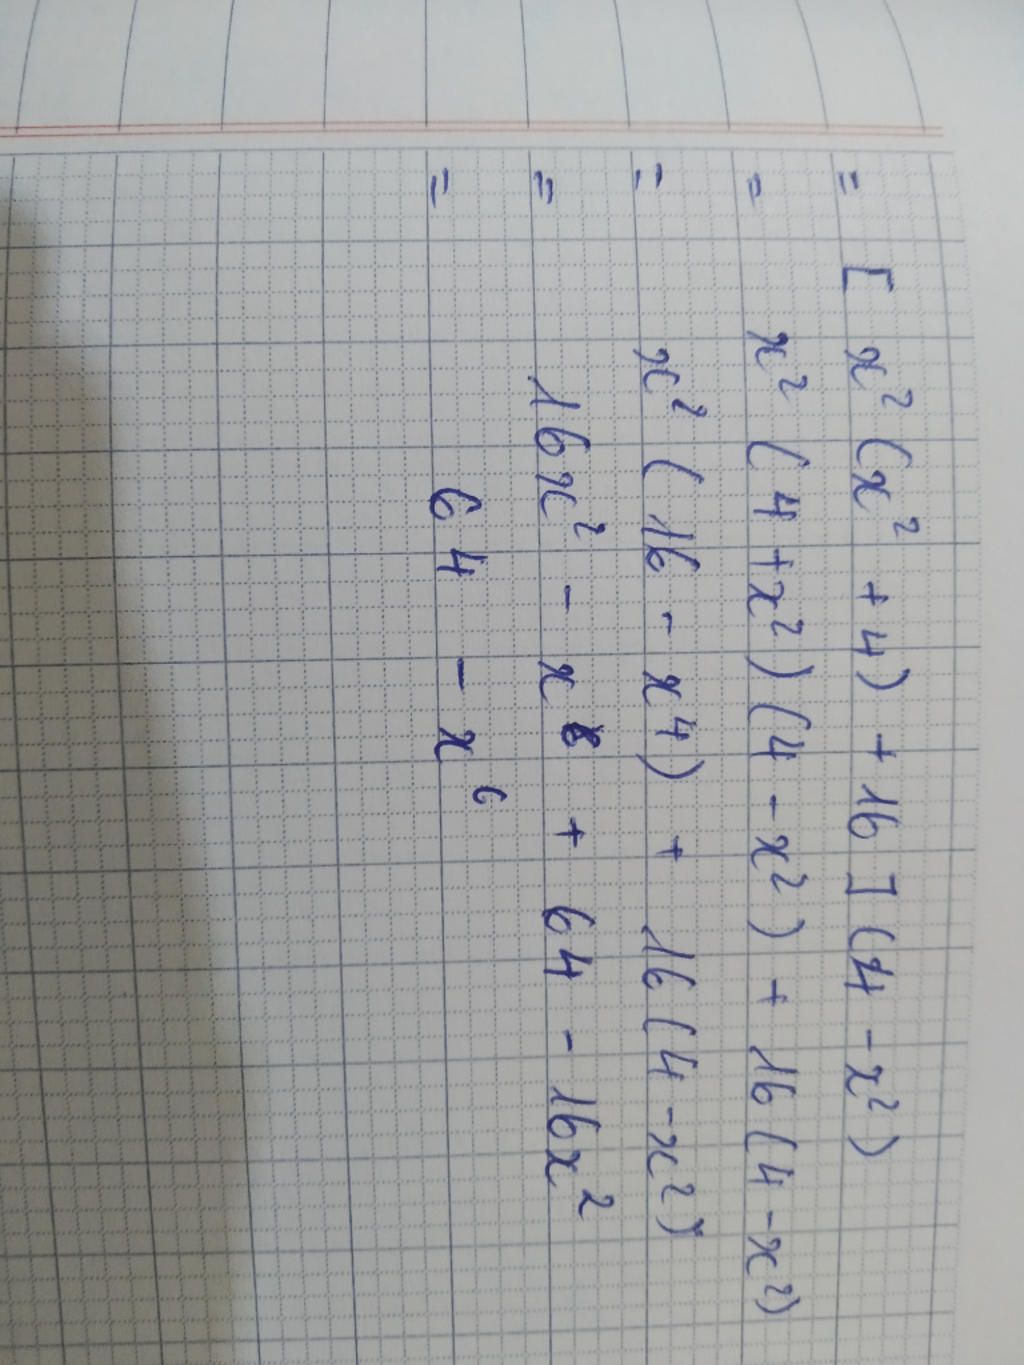 = [ x² (x² + 4) + 16 ] (4 - x²)
= x² (4 + x²) (4 - x²) + 16 (4 - x²)
= x² (16 - x⁴) + 16 (4 - x²)
= 16x² - x⁶ + 64 - 16x²
= 64 - x⁶